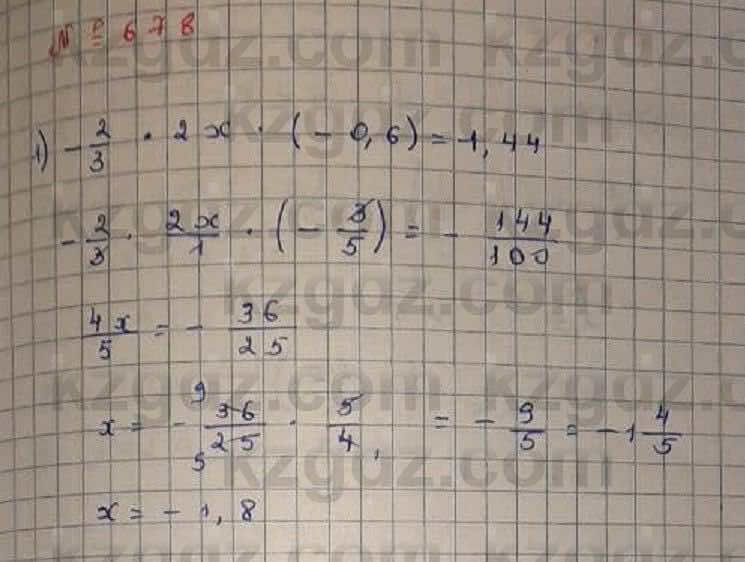 № 678
1) -2/3 · 2x · (-0,6) = -1,44
-2/3 · 2x/1 · (-3/5) = -144/100
4x/5 = -36/25
x = -36/25 · 5/4, = -9/5 = -1 4/5
9
5
x = -1,8
kzgdz.com